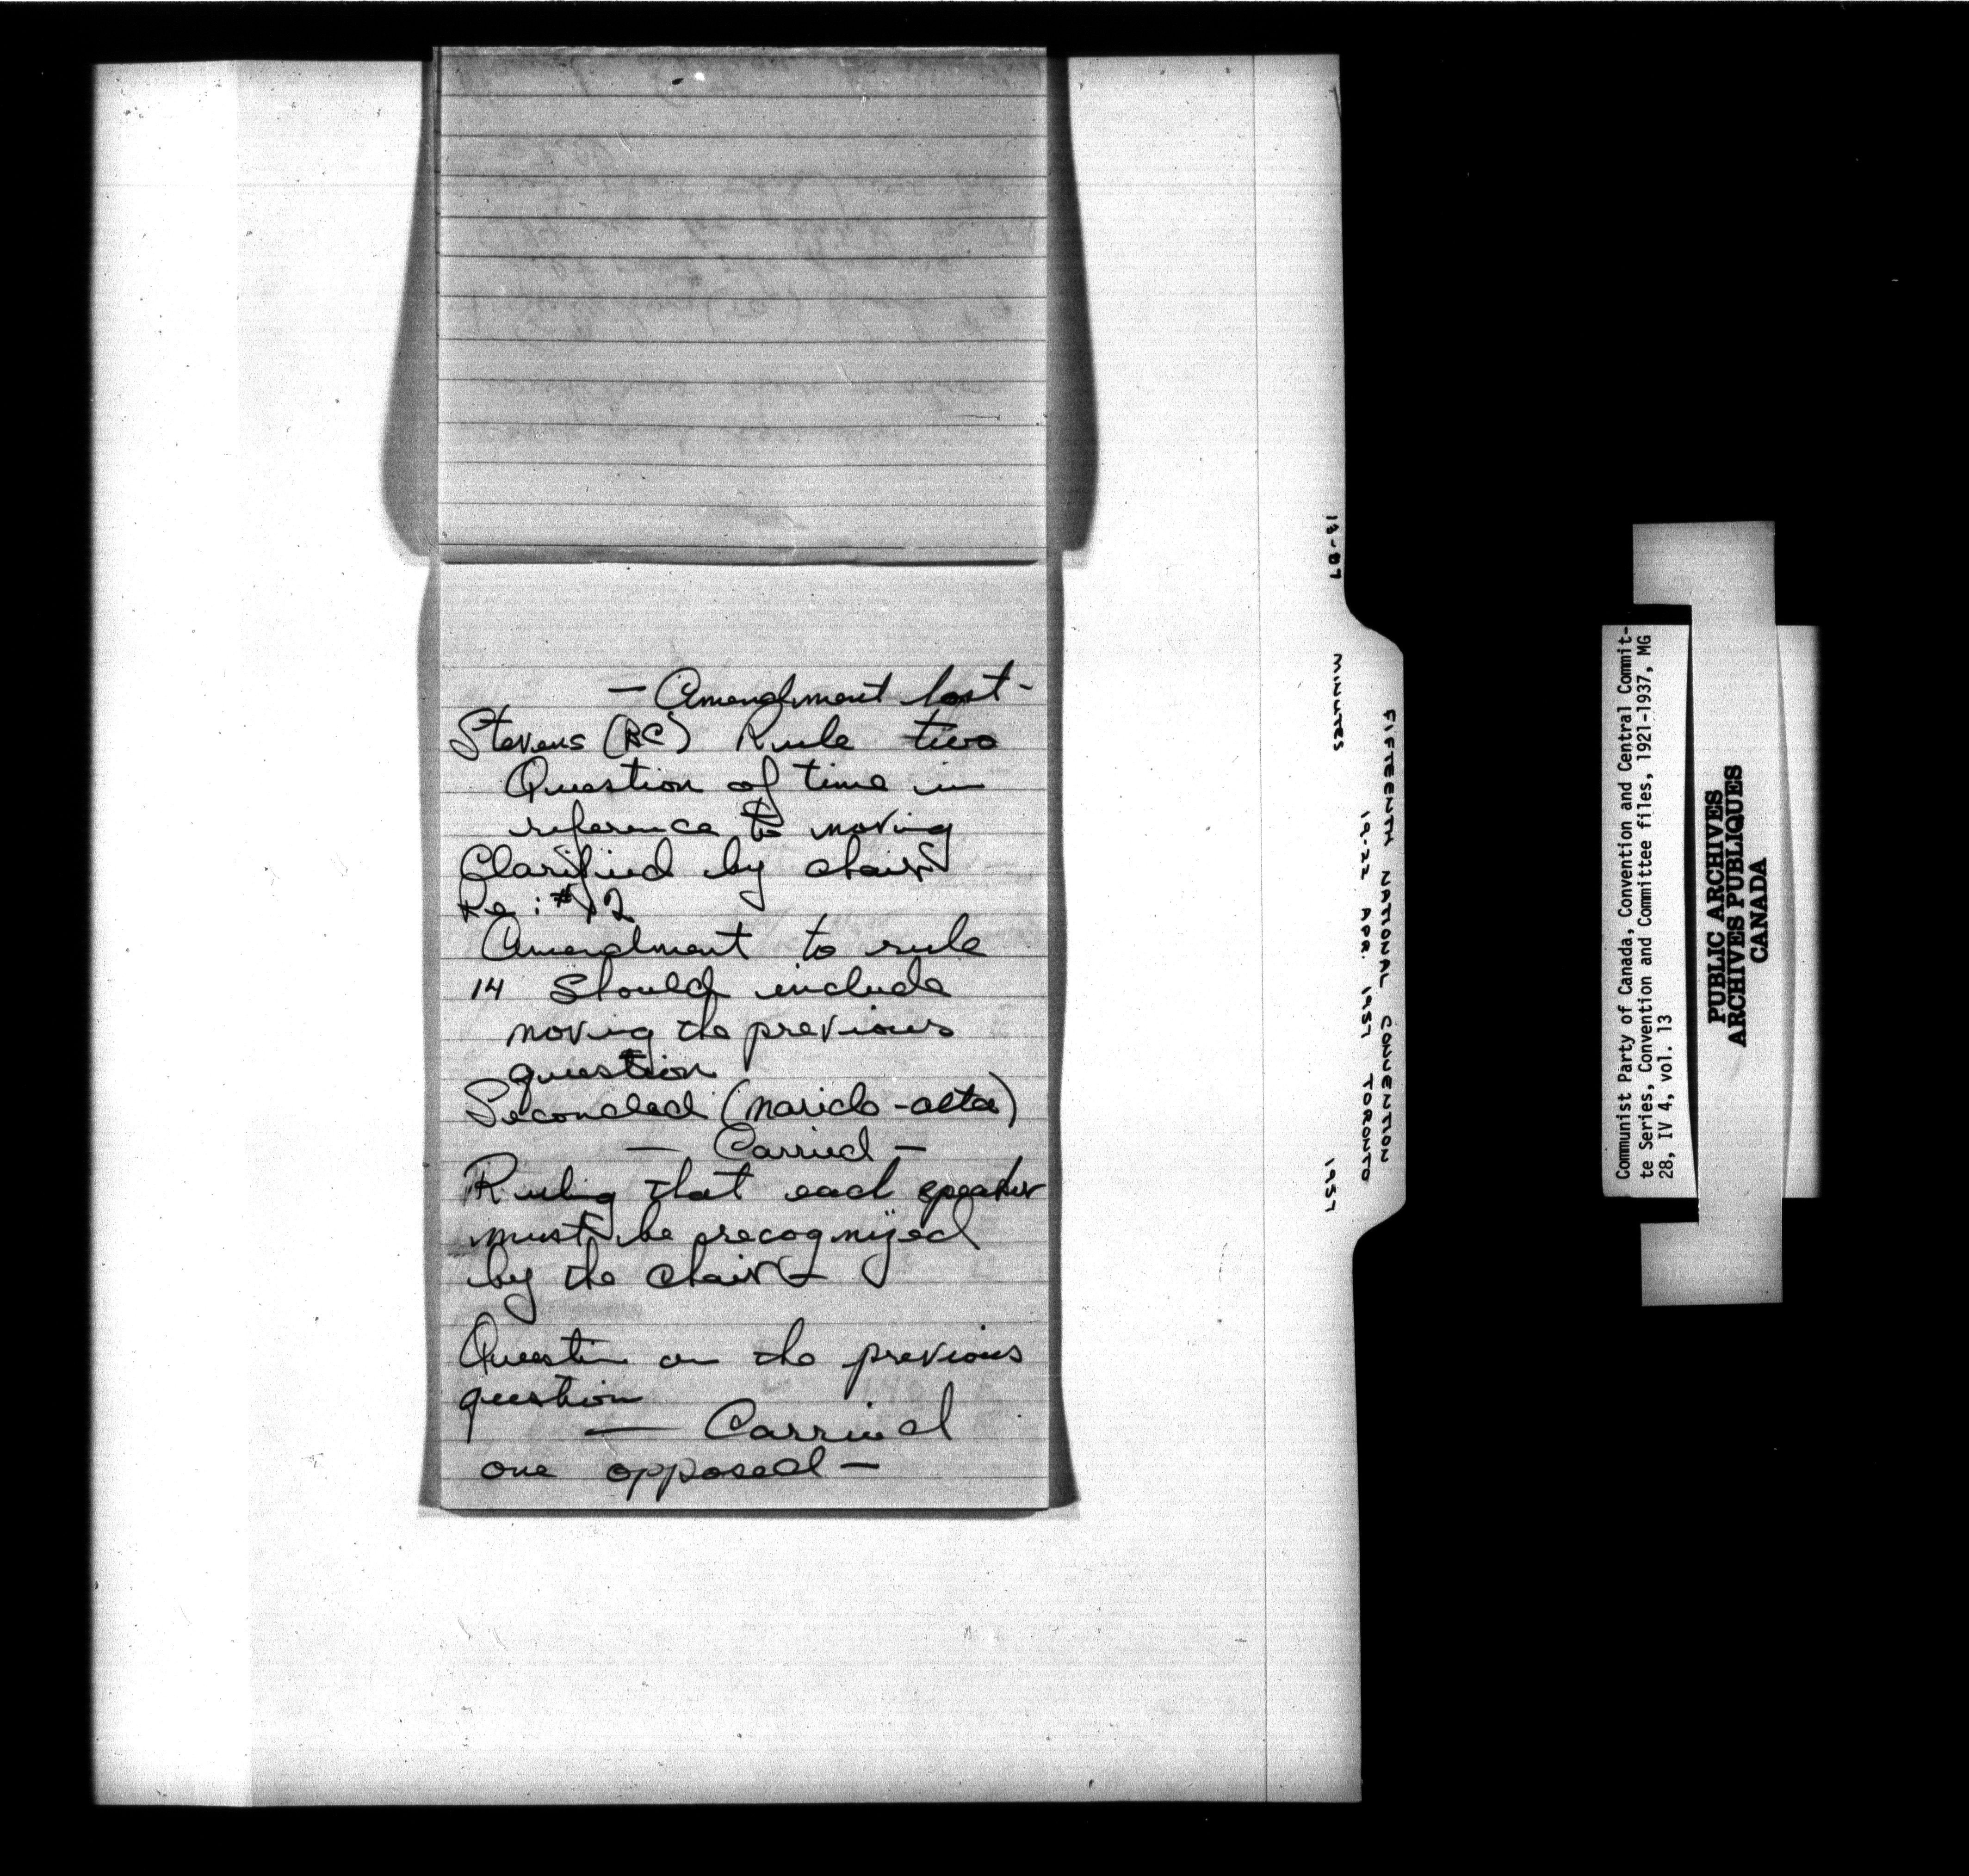 — Amendment lost -
Stevens (BC) Rule two
Question of time in
reference to moving
Clarified by chair
Re: #12
Amendment to rule
14 Should include
moving the previous
question
Seconded
— Carried —
Ruling that each speaker
must be recognized
by the chair
Question on the previous
question
— Carried
one opposed —
13-07
MINUTES
1957
FIFTEENTH NATIONAL CONVENTION
19-22 APR. 1957 TORONTO
Communist Party of Canada, Convention and Central Commit-
te Series, Convention and Committee files, 1921-1937, MG
28, IV 4, vol. 13
PUBLIC ARCHIVES
ARCHIVES PUBLIQUES
CANADA